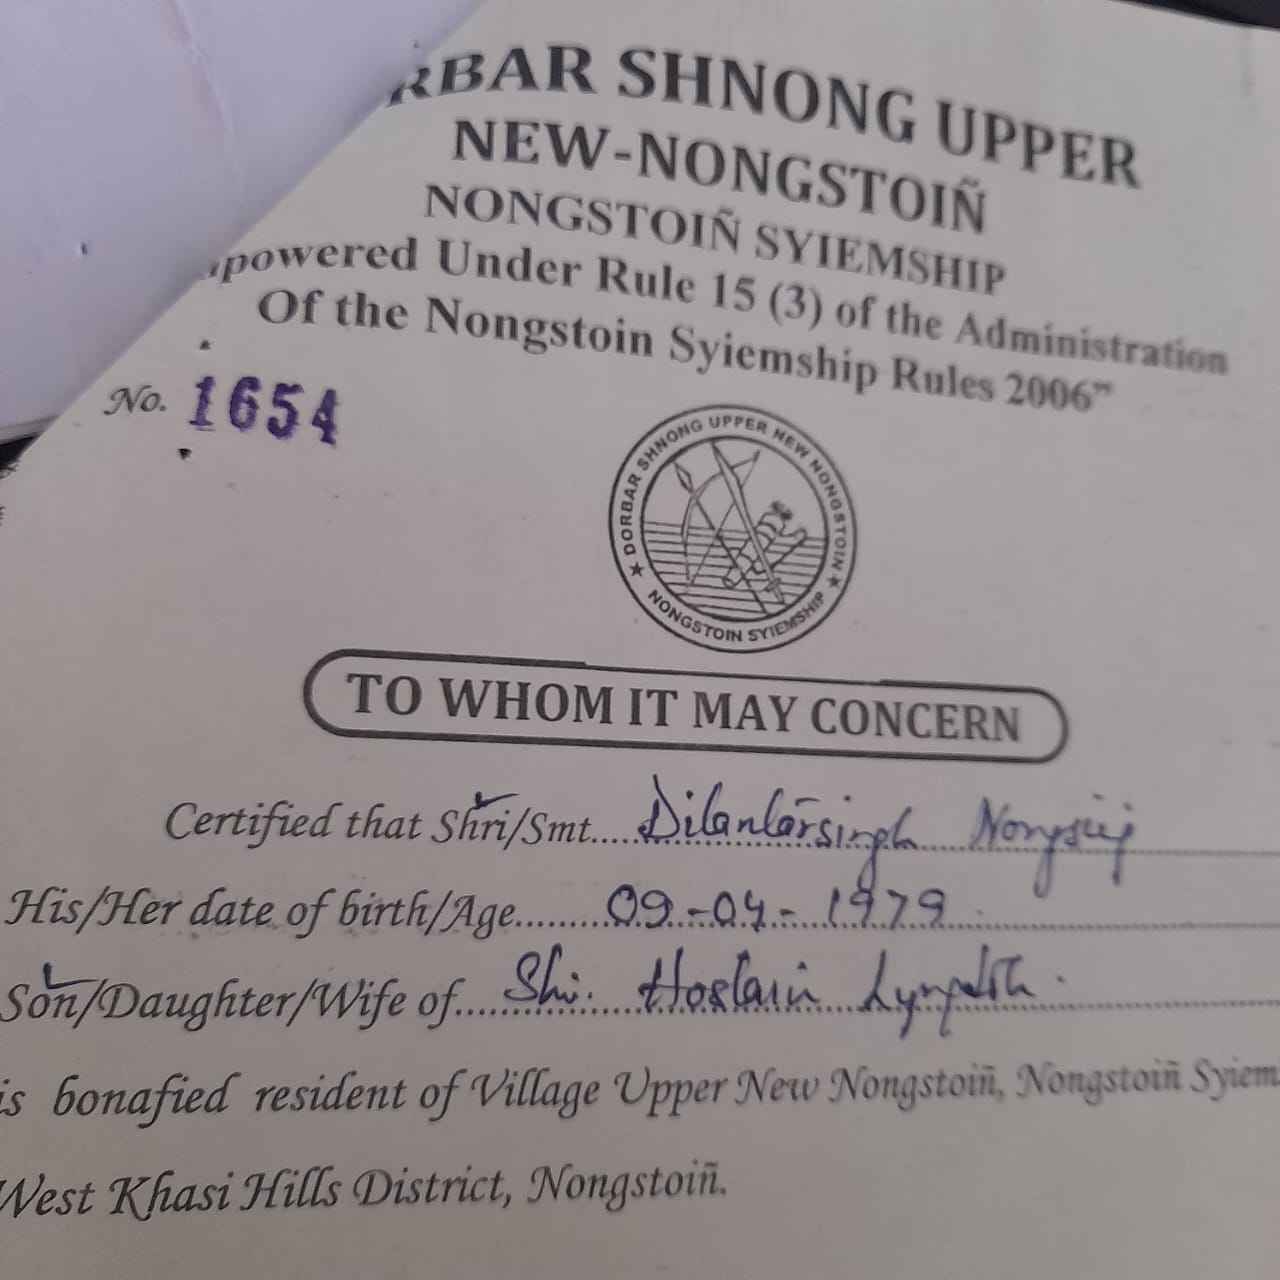 RBAR SHNONG UPPER
NEW-NONGSTOIÑ
NONGSTOIÑ SYIEMSHIP
powered Under Rule 15 (3) of the Administration
Of the Nongstoin Syiemship Rules 2006”
No. 1654
★ DORBAR SHNONG UPPER NEW NONGSTOIN ★
NONGSTOIN SYIEMSHIP
TO WHOM IT MAY CONCERN
Certified that Shri/Smt.... Dilanlarsingh
His/Her date of birth/Age........ 09-04-1979
Son/Daughter/Wife of.... Shri. Hoslain
is bonafied resident of Village Upper New Nongstoiñ, Nongstoiñ Syiem
West Khasi Hills District, Nongstoiñ.